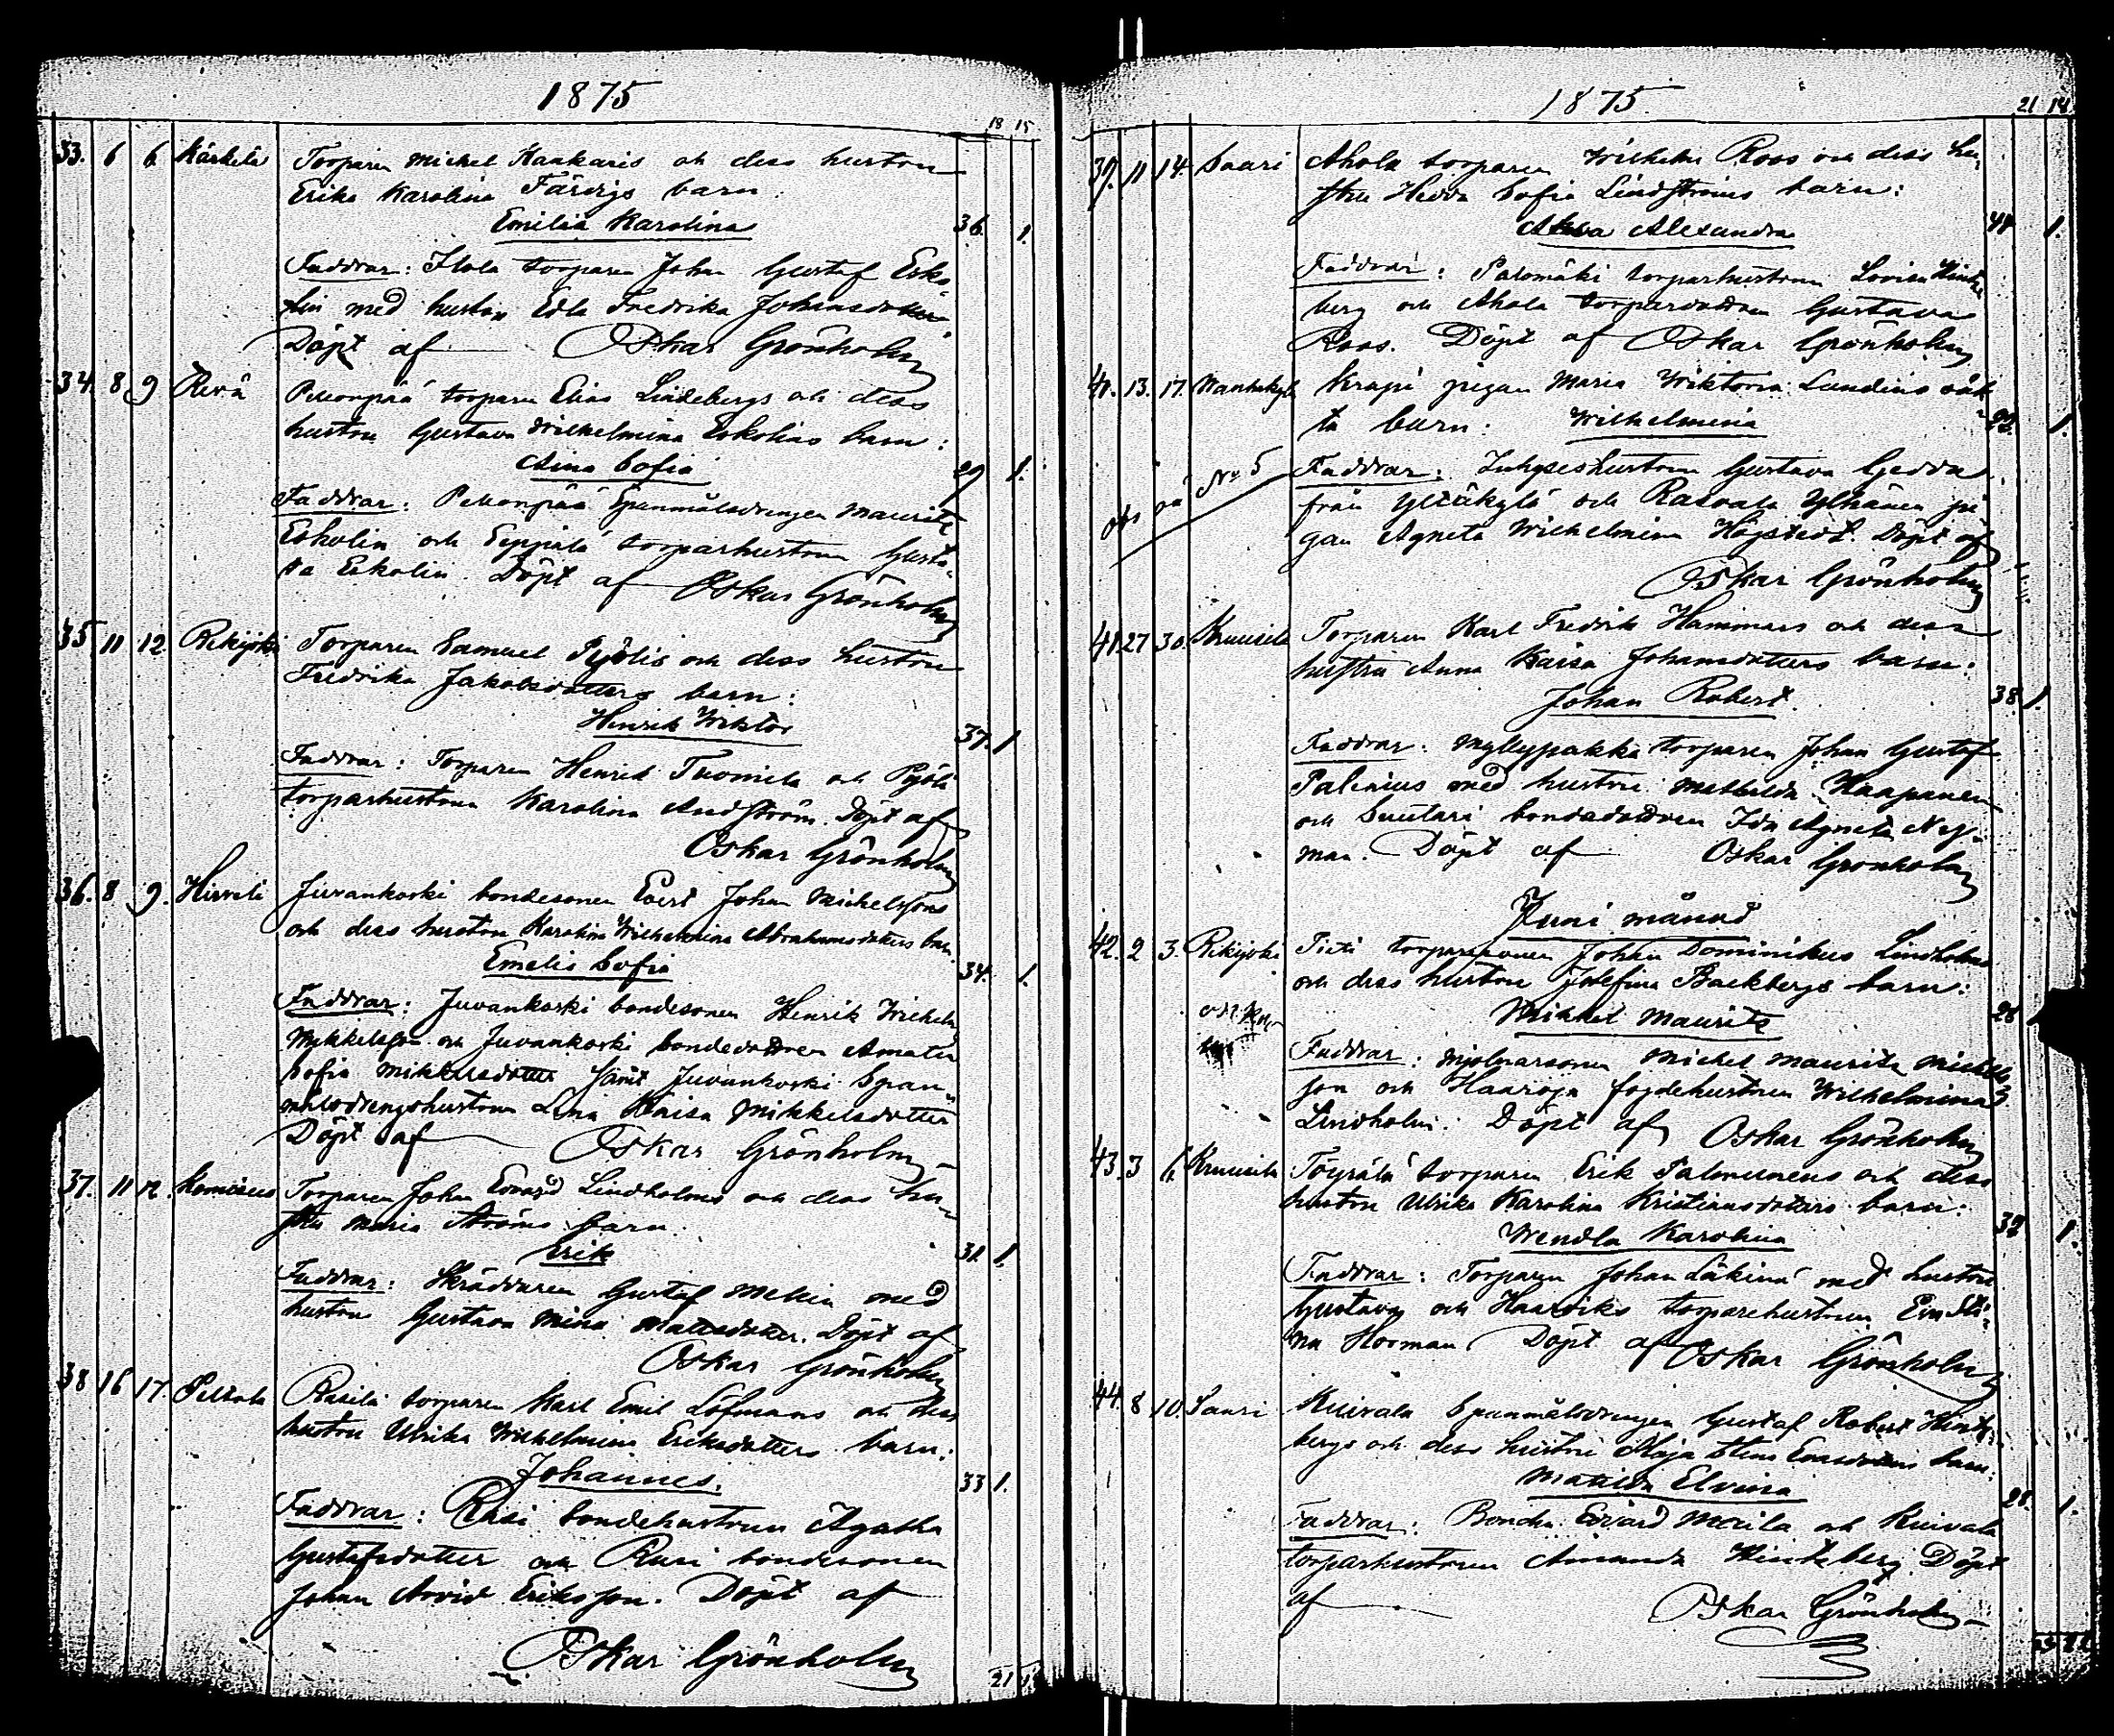 1875
18 15
33. 6 6 Kärkelä Torparen Michel Kaukaris och dess hustru
Erika Karolina Färdigs barn
Emilia Karolina 36. 1.
Faddrar: Ilola torparen Johan Gustaf Esko-
lin med hustru Edla Fredrika Johansdotter.
Döpt af Oskar Grönholm
34. 8 9 Pekonpää torparen Elias Lindebergs och dess
hustru Gustava Wilhelmina Eskolins barn:
Aina Sofia 29 1.
Faddrar: Pekonpää Spanmålsdrengen Maurits
Eskolin och Seppälä torparhustrun Gusta-
va Eskolin. Döpt af Oskar Grönholm
35 11 12. Rikijoki Torparen Samuel Pyölis och dess hustru
Fredrika Jakobsdotters barn:
Henrik Wiktor 37. 1
Faddrar: Torparen Henrik Tuomila och Pyöli
torparhustrun Karolina Andström. Döpt af
Oskar Grönholm
36. 8 9. Hirvelä Juvankoski bondesonen Evert Johan Michelssons
och dess hustru Karolina Wilhelmina Abrahamsdotters barn
Emelie Sofia 34. 1.
Faddrar: Juvankoski bondesonen Henrik Wilhelm
Mikkelsson och Juvankoski bondedottren Amalia
Sofia Mikkelsdotter samt Juvankoski Span-
målsdrengshustrun Lena Kaisa Mikkelsdotter
Döpt af Oskar Grönholm
37. 11 12. Torparen Johan Edvard Lindholms och dess hu-
stru Maria Ströms barn.
Erik 31. 1.
Faddrar: Skräddaren Gustaf Melin med
hustru Gustava Mina Mattsdotter. Döpt af
Oskar Grönholm
38 16 17. Peltola Rasila torparen Karl Emil Löfmans och dess
hustru Ulrika Wilhelmina Eriksdotters barn:
Johannes. 33 1.
Faddrar: Rasi bondehustrun Agatha
Gustafsdotter och Rasi bondesonen
Johan Arvid Eriksson. Döpt af
Oskar Grönholm
21
1875.
21 18
39. 11 14. Saari Ahola torparen Wilhelm Roos och dess hu-
stru Hedda Sofia Lindströms barn:
Alexandra 44 1.
Faddrar: Palomäki torparhustrun Lovisa Hintz-
berg och Ahola torpardottren Gustava
Roos. Döpt af Oskar Grönholm
40. 13. 17. Krapi pigan Maria Wiktoria Lundins oäk-
ta barn: Wilhelmina 22. 1.
obs på No 5 Faddrar: Inhyseshustrun Gustava Gedda
från Yläkylä och Rasvala Ylhänen pi-
gan Agneta Wilhelmina Högstedt. Döpt af
Oskar Grönholm
41. 27 30. Kruusila Torparen Karl Fredrik Hammars och dess
hustru Anna Kaisa Johansdotters barn:
Johan Robert. 38. 1.
Faddrar: Myllypakka torparen Johan Gustaf
Palenius med hustru Mathilda Haapanen
och Suutari bondedottren Ida Agneta Ny-
man. Döpt af Oskar Grönholm
Juni månad
42. 2 3. Rikijoki torparesonen Johan Dominikus Lindholms
och dess hustru Josefina Backbergs barn:
Mikkel Maurits 28
Faddrar: Mjölnarsonen Michel Maurits Michels-
son och Haaroja fogdehustrun Wilhelmina
Lindholm. Döpt af Oskar Grönholm
43. 3 6. Kruusila Töyrälä torparen Erik Salomonens och dess
hustru Ulrika Karolina Kristiansdotters barn:
Wendla Karolina 32 1.
Faddrar: Torparen Johan Läkinä med hustru
Gustava och Haaviks torparehustrun Eva Sti-
na Horman. Döpt af Oskar Grönholm
44. 8 10. Saari Kuivala Spanmålsdrengen Gustaf Robert Hintz-
bergs och dess hustru Maja Stina barn:
Matilda Elvina 28. 1.
Faddrar: Bonden Edvard Merila och Kuivala
torparhustrun Amanda Hintzberg. Döpt
af Oskar Grönholm